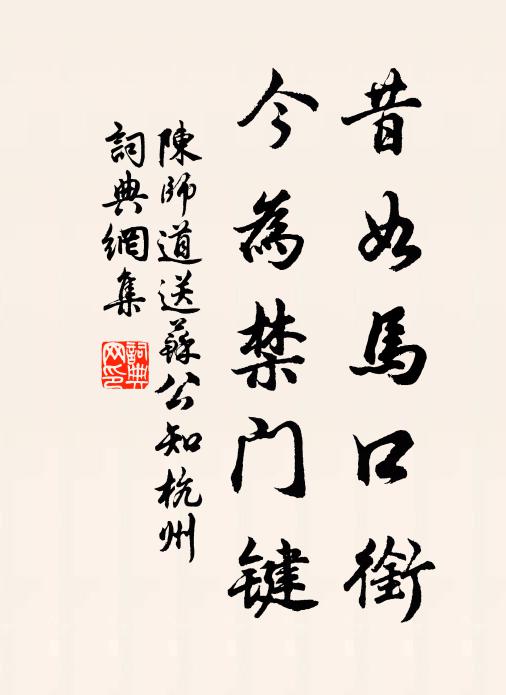 昔如馬口銜
今為禁門键
陳師道送蘇公知杭州
詞典網集
詞典
网印